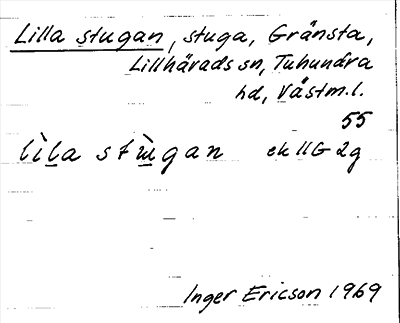 Lilla stugan, stuga, Gränsta,
Lillhärads sn, Tuhundra
hd, Västm.l.
55
lìla stɯ̀gan ek 11G 2g
Inger Ericson 1969